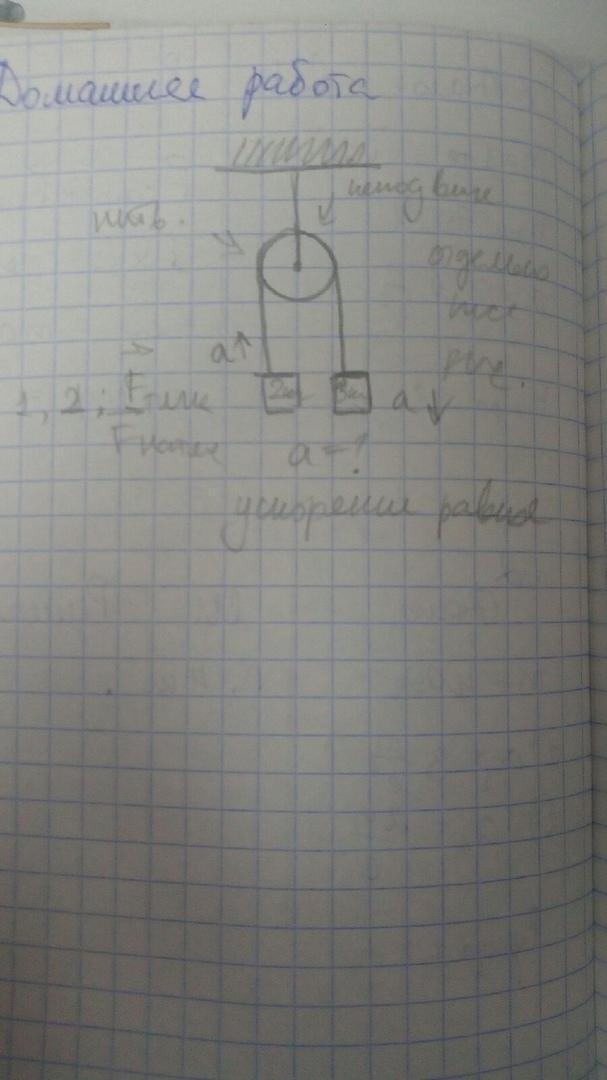 Домашнее работа
неподвиж
нить.
отдельно
рис.
a↑
2кг 3кг a↓
1, 2; F тяж
F натяж
a = ?
ускорения равны